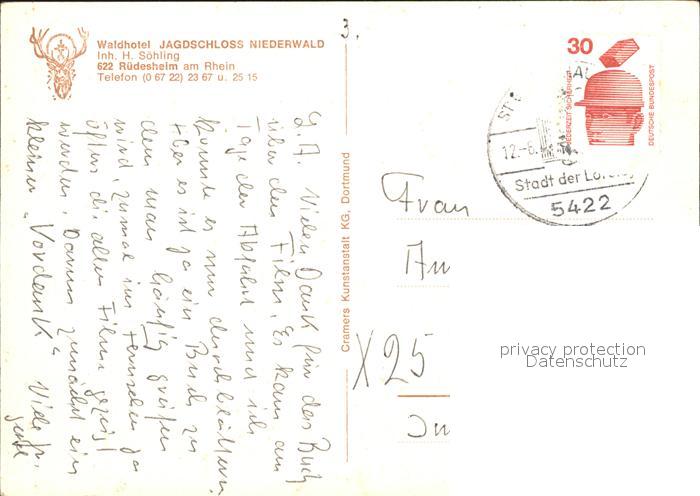 Waldhotel JAGDSCHLOSS NIEDERWALD
Inh. H. Söhling
622 Rüdesheim am Rhein
Telefon (0 67 22) 23 67 u. 25 15
3.
L. A. Vielen Dank für das Buch
über den Film. Es kam am
Tage der Abfahrt und ich
konnte es nur durchblättern.
Aber es ist ja ein Buch zu
dem man häufig greifen
wird, zumal im Fernsehen ja
öfter die alten Filme gezeigt
werden. Darum zunächst ein
kleiner "Vordank". Viele
Cramers Kunstanstalt KG, Dortmund
30
JEDERZEIT SICHERHEIT
DEUTSCHE BUNDESPOST
ST
12.-8.
Stadt der Lorel
5422
Frau
An
X25
In
privacy protection
Datenschutz